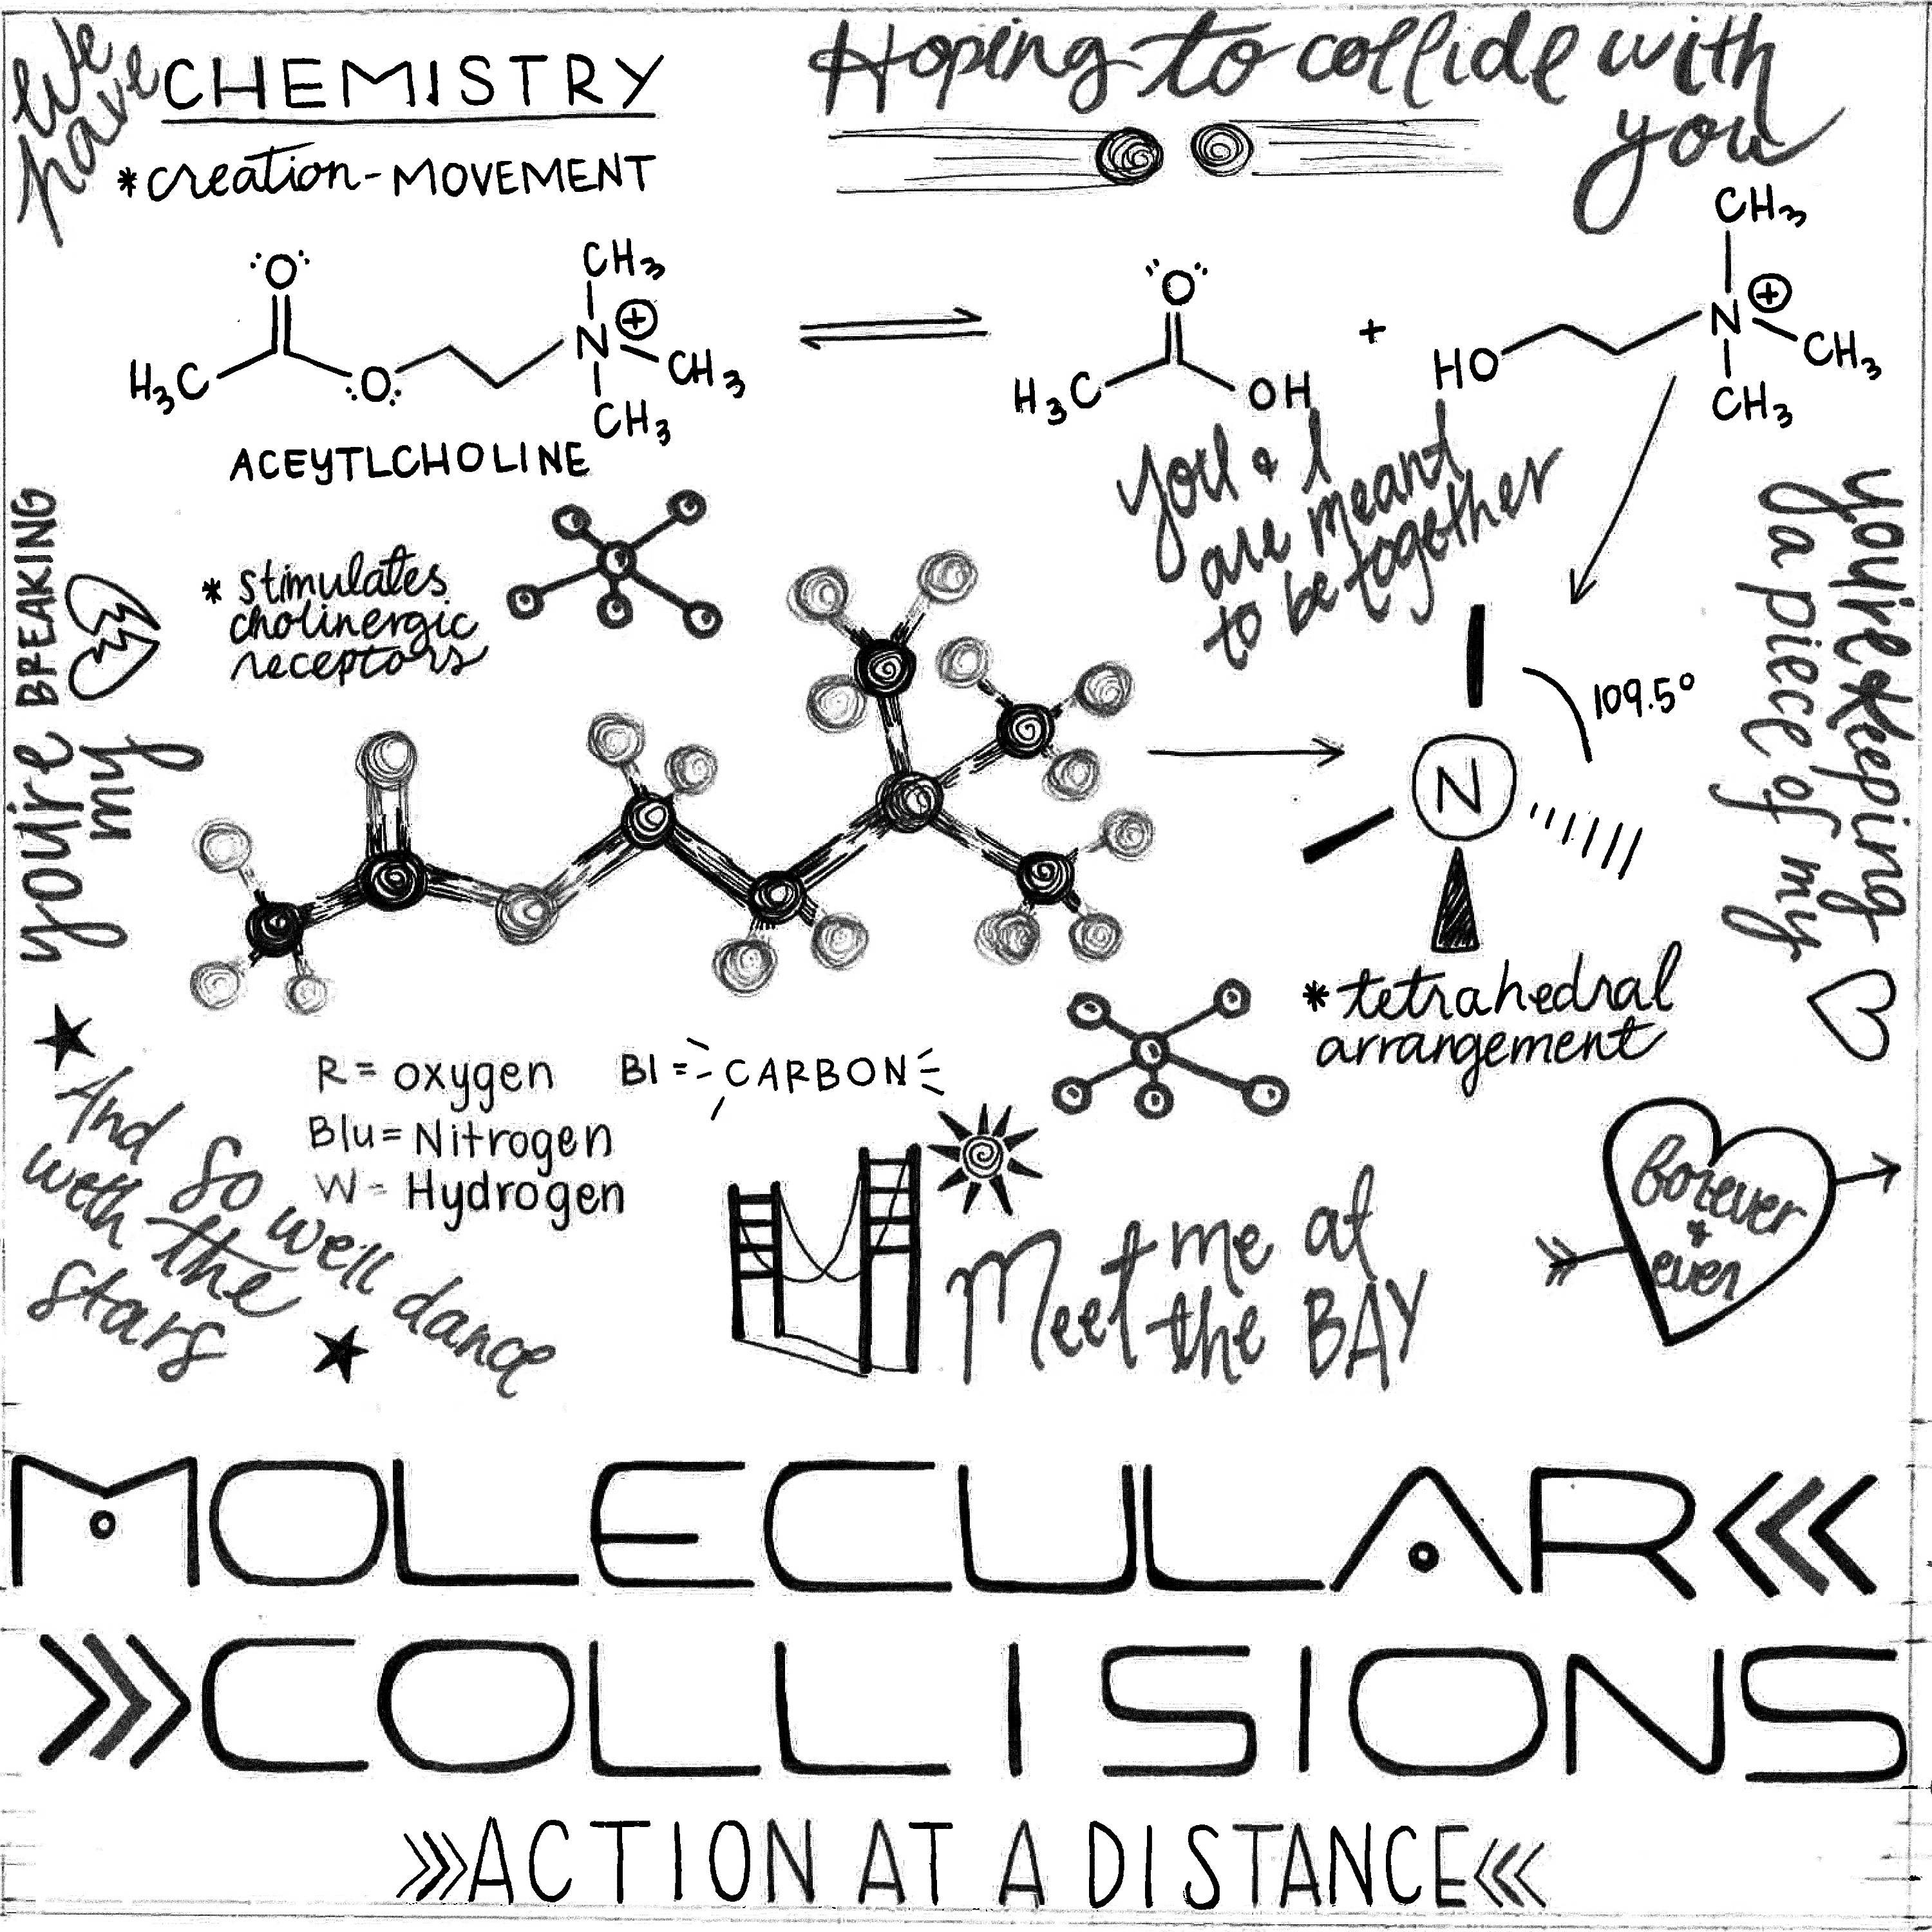 We
have
CHEMISTRY
*creation-MOVEMENT
Hoping to collide with
you
O
H₃C
O
N
⊕
CH₃
CH₃
CH₃
ACEYTLCHOLINE
O
H₃C
OH
+
HO
N
⊕
CH₃
CH₃
CH₃
you & I
are meant
to be together
* stimulates
cholinergic
receptors
you're BREAKING
my
you're keeping
a piece of my
N
109.5°
*tetrahedral
arrangement
R = oxygen
Bl = CARBON
Blu = Nitrogen
W = Hydrogen
And so we'll dance
with the
stars
Meet me at
the BAY
forever
&
ever
MOLECULAR<<<
>>>COLLISIONS
>>>ACTION AT A DISTANCE<<<